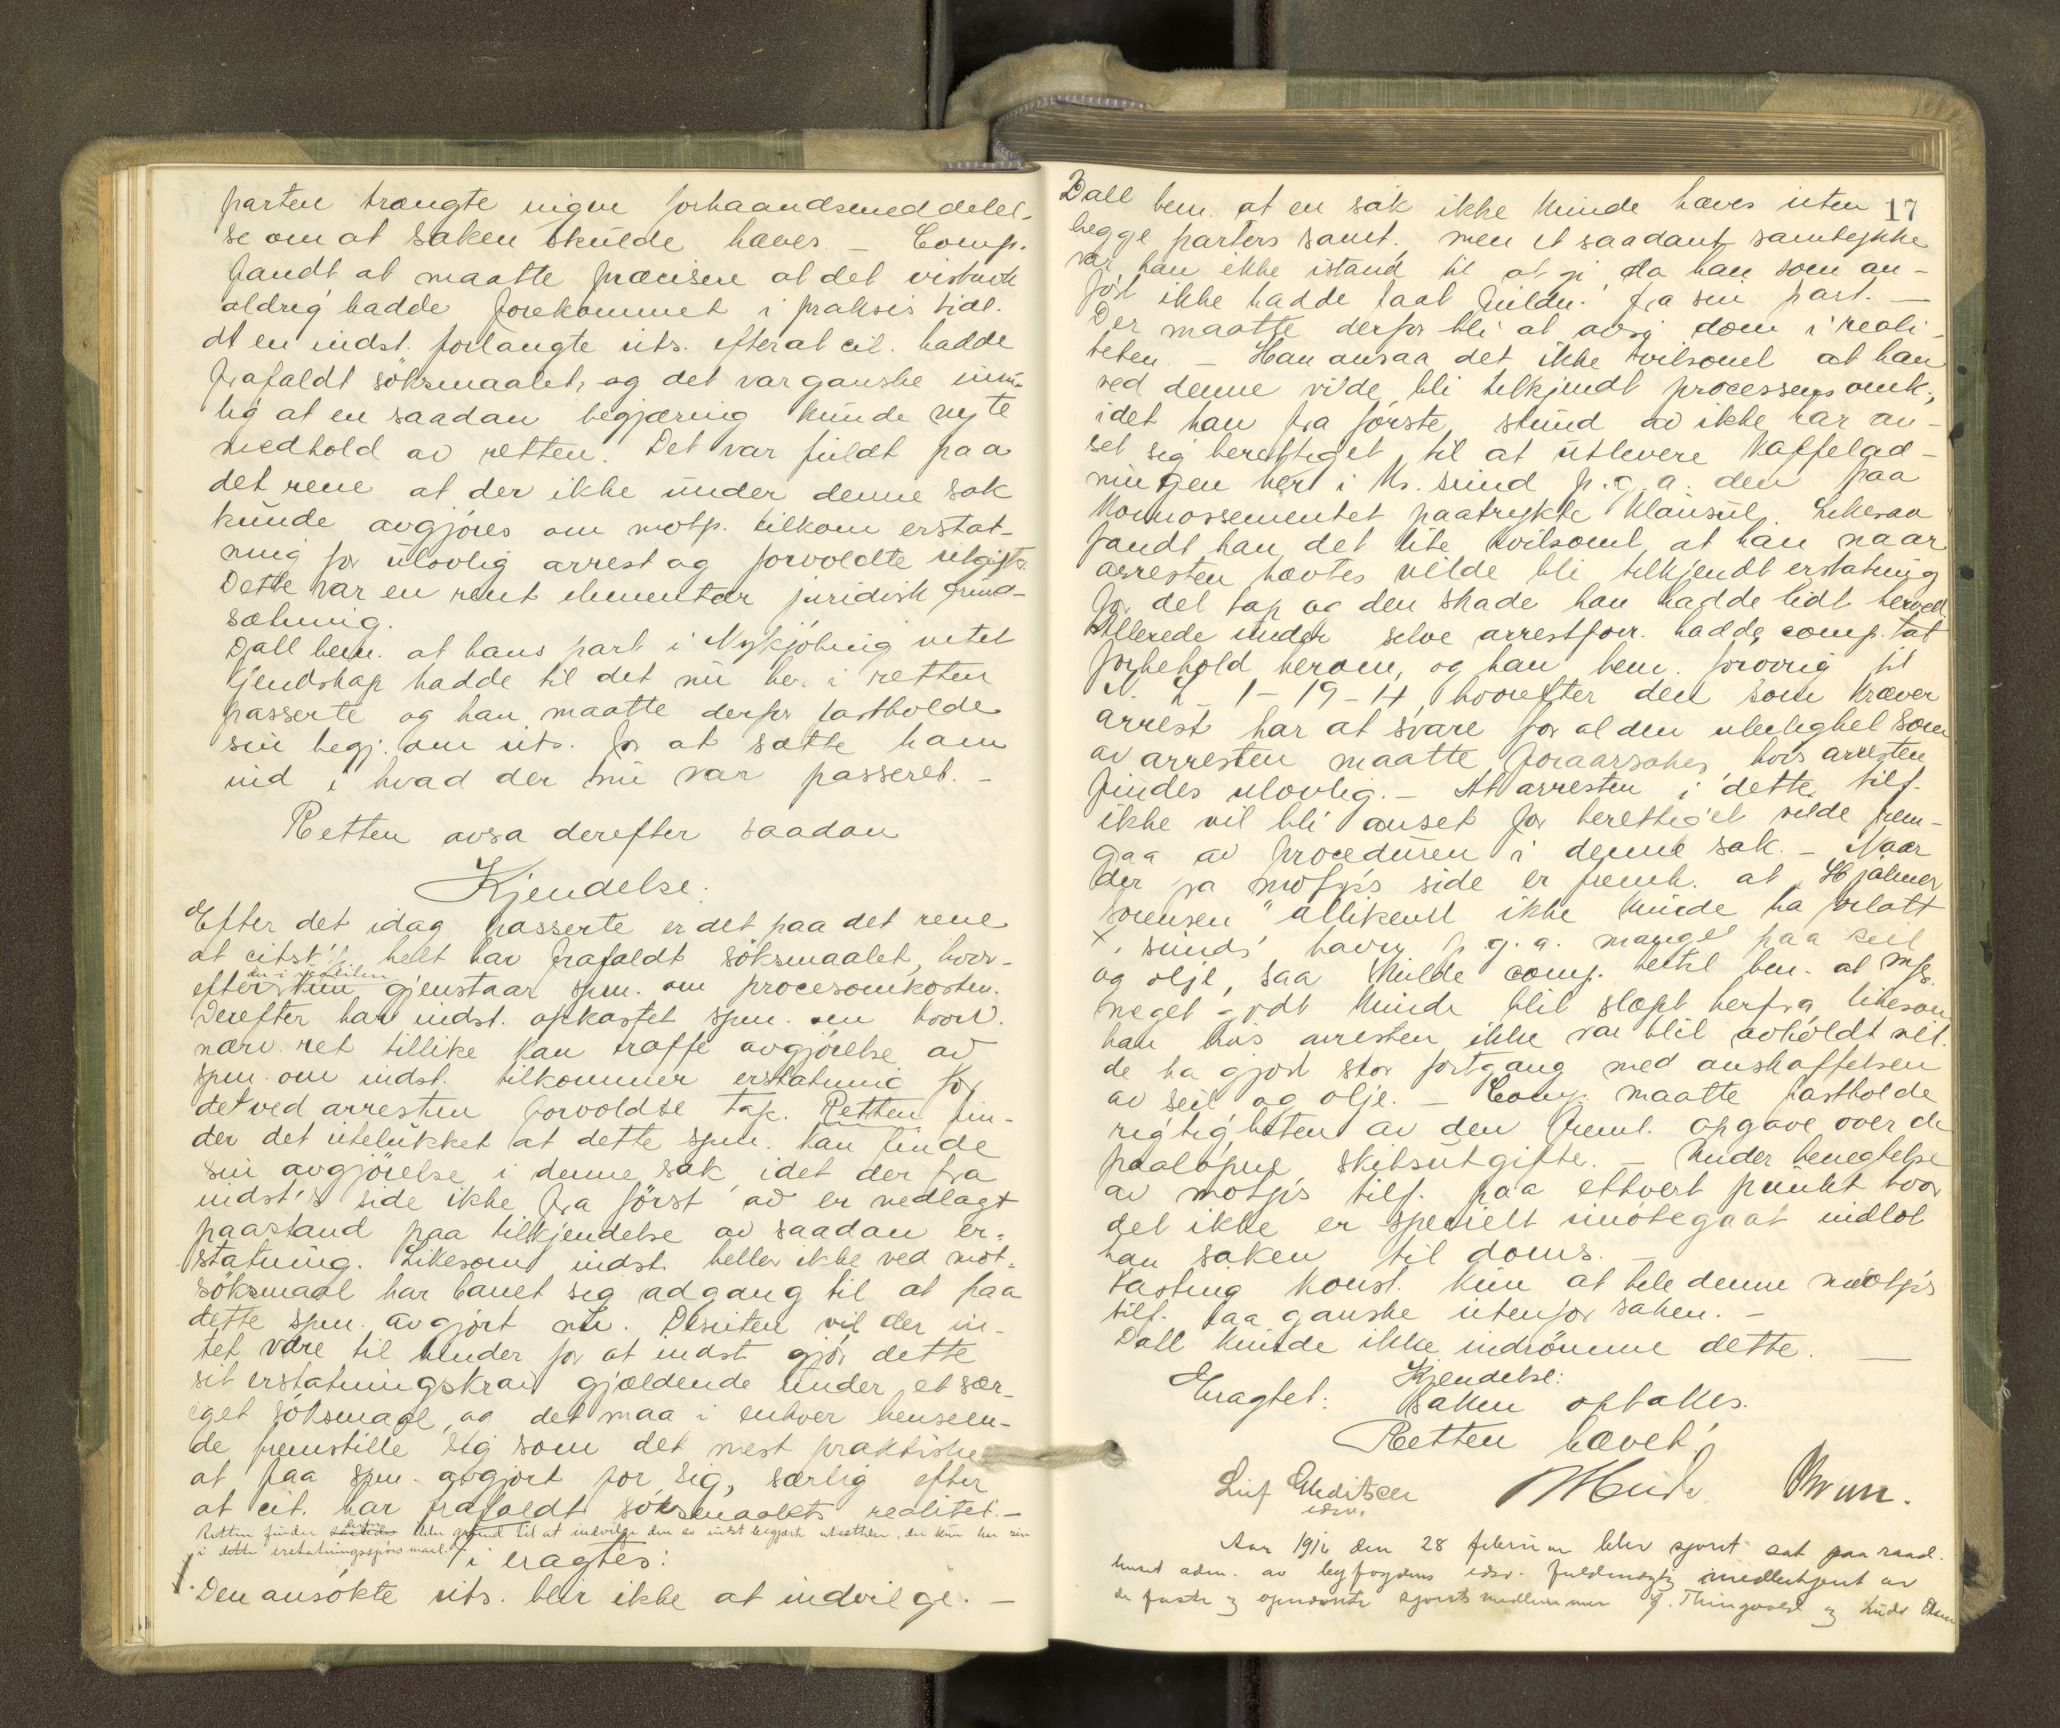 parten trængte ingen forhaandsmeddelel-
se om at saken skulde hæves. - Comp.
fandt at maatte præcisere at det vistnok
aldrig hadde forekommet i praksis tidl.
at en indst. forlangte uts. efterat cit. hadde
frafaldt söksmaalet, og det var ganske umu-
lig at en saadan begjæring kunde nyte
medhold av retten. Det var fuldt paa
det rene at der ikke under denne sak
kunde avgjøres om motp. tilkom erstat-
ning for ulovlig arrest og forvoldte utgifter.
Dette var en rent elementær juridisk grund-
sætning.
Dall bem. at hans part i Nykjöbing intet
kjendskap hadde til det nu her i retten
passerte og han maatte derfor fastholde
sin begj. om uts. for at sætte ham
ind i hvad der nu var passeret. -
Retten avsa derefter saadan
Kjendelse:
Efter det idag passerte er det paa det rene
at citst. helt har frafaldt söksmaalet, hvor-
efter der i realiteten kun gjenstaar spm. om procesomkosten.
Derefter har indst. opkastet spm. om hvorv.
nærv. ret tillike kan træffe avgjörelse av
spm. om indst. tilkommer erstatning for
det ved arresten forvoldte tap. Retten fin-
der det utelukket at dette spm. kan finde
sin avgjörelse i denne sak, idet der fra
indst's side ikke fra först av er nedlagt
paastand paa tilkjendelse av saadan er-
statning. Likesom indst. heller ikke ved mot-
söksmaal har banet sig adgang til at faa
dette spm. avgjort nu. Desuten vil der in-
tet være til hinder for at indst. gjör dette
sit erstatningskrav gjældende under et sær-
eget söksmaal, og det maa i enhver henseen-
de fremstille sig som det mest praktiske
at faa spm. avgjort for sig, særlig efter
at cit. har frafaldt söksmaalets realitet. -
Retten finder derfor ikke grund til at indvilge den av indst. begjærte utsættelse, der kun har sin
i dette erstatningsspörsmaal.
i eragtes:
Den ansökte uts. blir ikke at indvilge. -
17
Dall bem. at en sak ikke kunde hæves uten
begge parters samt. men et saadant samtykke
var han ikke istand til at gi da han som an-
fört ikke hadde faat fuldm. fra sin part. -
Der maatte derfor bli at avsi dom i reali-
teten. - Han ansaa det ikke tvilsomt at han
ved denne vilde bli tilkjendt processens omk.,
idet han fra förste stund av ikke har an-
set sig berettiget til at utlevere kaffelad-
ningen her i Kr.sund p.g.a. den paa
konnossementet paatrykte klausul. Likesaa
fandt han det lite tvilsomt at han naar
arresten hævtes vilde bli tilkjendt erstatning
for det tap og den skade han hadde lidt herved
Allerede under selve arrestforr. hadde comp. tat
forbehold herom, og han henv. forövrig til
N. L. 1-19-4, hvorefter den som kræver
arrest har at svare for al den uleilighet som
av arresten maatte foraarsakes, hvis arresten
findes ulovlig. - At arresten i dette tilf.
ikke vil bli anset for berettiget vilde frem-
gaa av proceduren i denne sak. - Naar
der fra motp's side er fremh. at "Hjalmar
Sorensen" allikevel ikke kunde ha forlatt
Kr.sunds havn p.g.a. mangel paa seil
og olje, saa skulde comp. hertil bem. at
meget godt kunde blit slæpt herfra, likesom
han hvis arresten ikke var blit avholdt vil-
de ha gjort stor fortgang med anskaffelsen
av seil og olje. - Comp. maatte fastholde
rigtigheten av den freml. opgave over de
paaløpne skibsutgifter. - Under benegtelse
av motp's tilf. paa ethvert punkt hvor
det ikke er specielt imötegaat indlot
han saken til doms. -
Tasting konst. kun at hele denne motp's
tilf. laa ganske utenfor saken. -
Dall kunde ikke indrömme dette. -
Kjendelse:
Eragtet: Saken optakes.
Retten hævet!
Leif
edsv.
Aar 1916 den 28 februar blev sjørett sat paa raad-
huset adm. av byfogdens edsv. fuldmægtig medbetjent av
de faste og opnævnte sjøretsmedlemmer Thingvold og